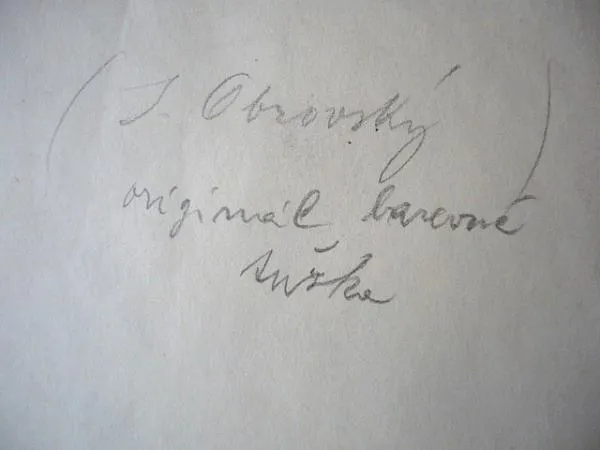 (J. Obrovský)
originál barevné
tužka